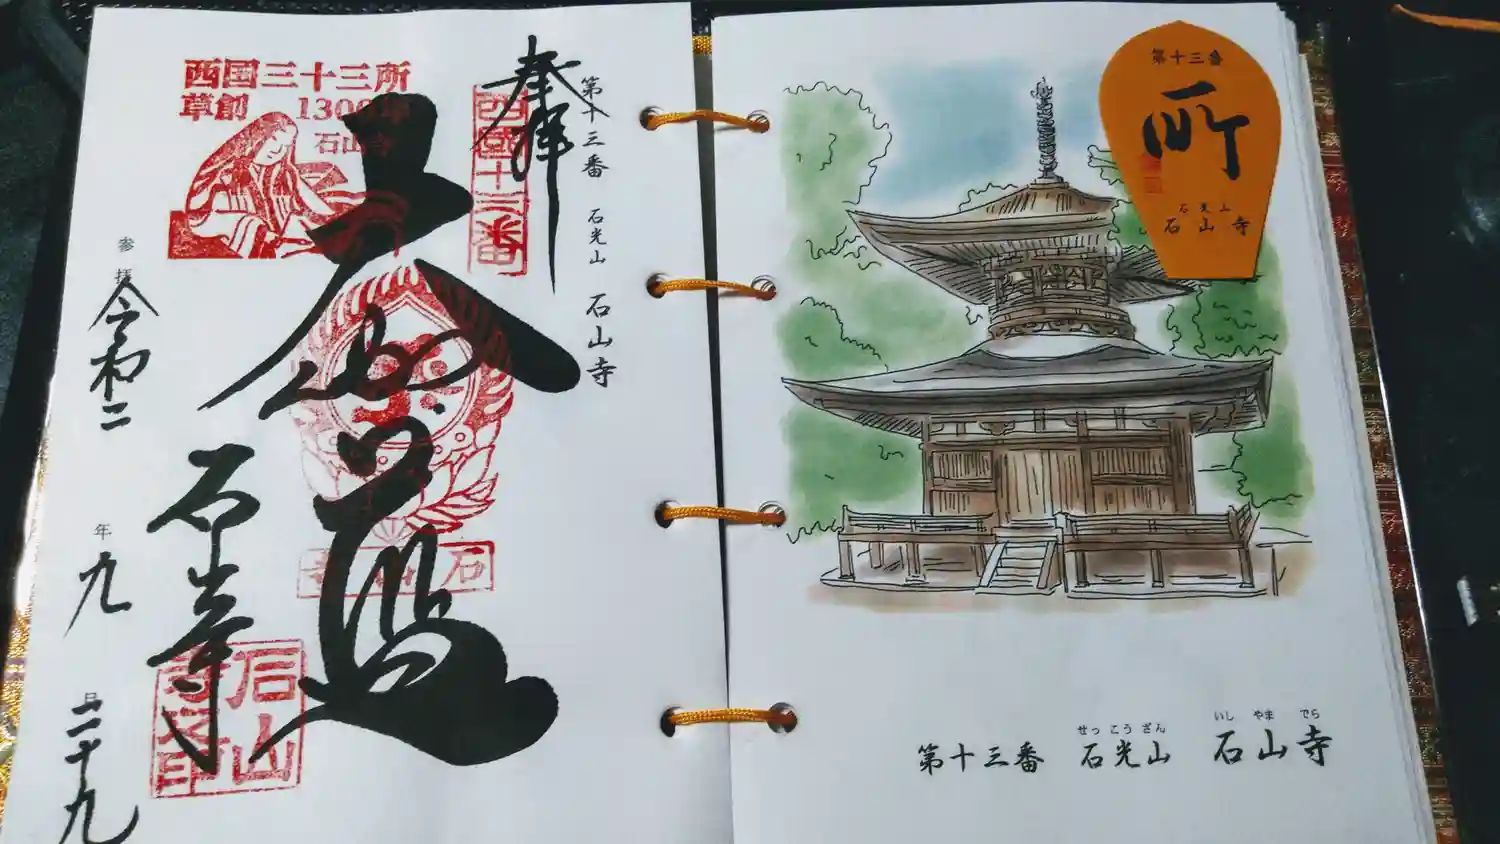 奉拝
第十三番 石光山 石山寺
西国三十三所
草創 1300年
石山寺
西國十三番
大伽藍
石山寺
石山
寺印
石山寺
参拝
令和二
年
九
日
二十九
第十三番
石光山
石山寺
せっこうざん いしやまでら
第十三番 石光山 石山寺